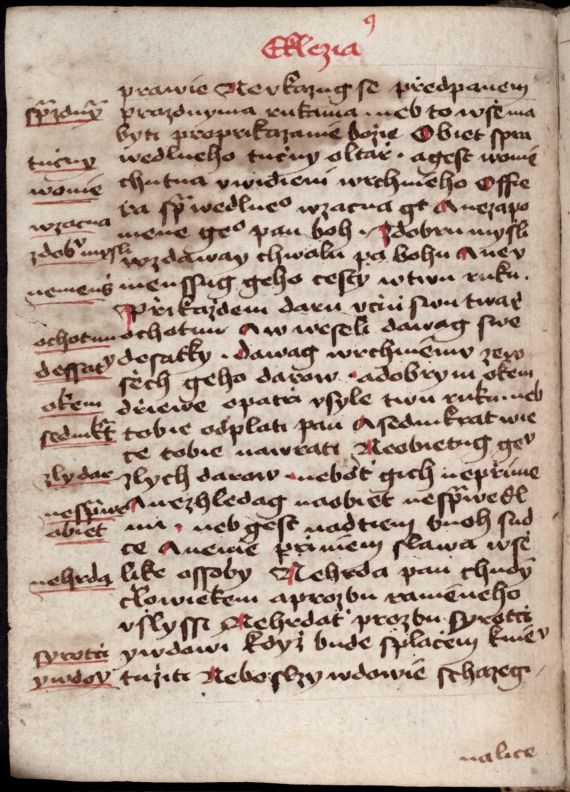 Ekklezia
prawie Nevkazug se předpanem
prazdnyma rukama neb to wše ma
byti proprikazanie božie Obiet spra
wedlneho tučny oltař · agest wonie
chutna vwidieni wrchnieho Offie
ra spwedlneo wzacna gt Anezapo
mene geo pan boh · Zdobru mysli
wzdaway chwalu pa bohu Aney
menssug geho cesty wtwu ruku ·
Przikazdem daru vcin swu twarz
ochotnu Aw weseli dawag swe
desatky · dawag wrchniemu zew
sech geho darow · adobrym okem
driewe opatri vsyle twu ruku neb
tobie odplati pan Asedmkrat wie
ce tobie nawrati Neobietug gey
zlych darow · nebot gich neprime
Anezhledag naobiet nespwedl
nu · neb gest nadtiem buoh sud
ce Anenie przi niem slawa wsse
like ossoby Nehrda pan chudy
człowiekem aprozbu ranieneho
vslyssi Nehrdat prozbu syrotci
ywdowi kdyz bude splaczem kniey
tuziti Nebo slzy wdowie schazegi
spzdny
tučny
wonie
wzacna
zdob mysli
nemens
ochotnu
dessaty
okem
sedmkrt
zly dar
nespwe
obiet
nehrda
syrotci
ywdoy
nalice